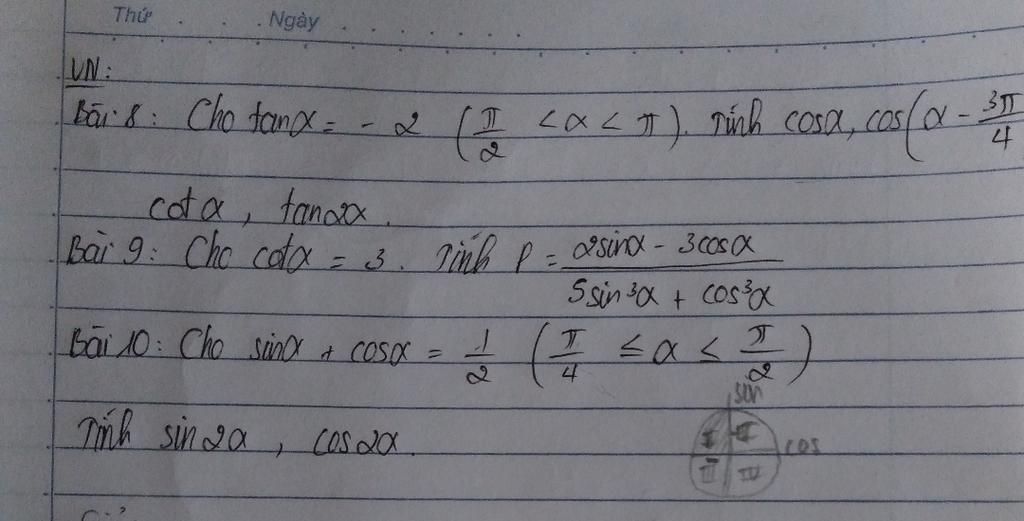 Thứ . . . . Ngày . . . . . . .
VN:
Bài 8: Cho tanα = - 2 (π/2 < α < π). Tính cosα, cos(α - 3π/4
cotα, tan2α.
Bài 9: Cho cotα = 3. Tính P = (2sinα - 3cosα)/(5sin³α + cos³α)
Bài 10: Cho sinα + cosα = 1/2 (π/4 ≤ α ≤ π/2)
Tính sin2α, cos2α.
sin
cos
III IV